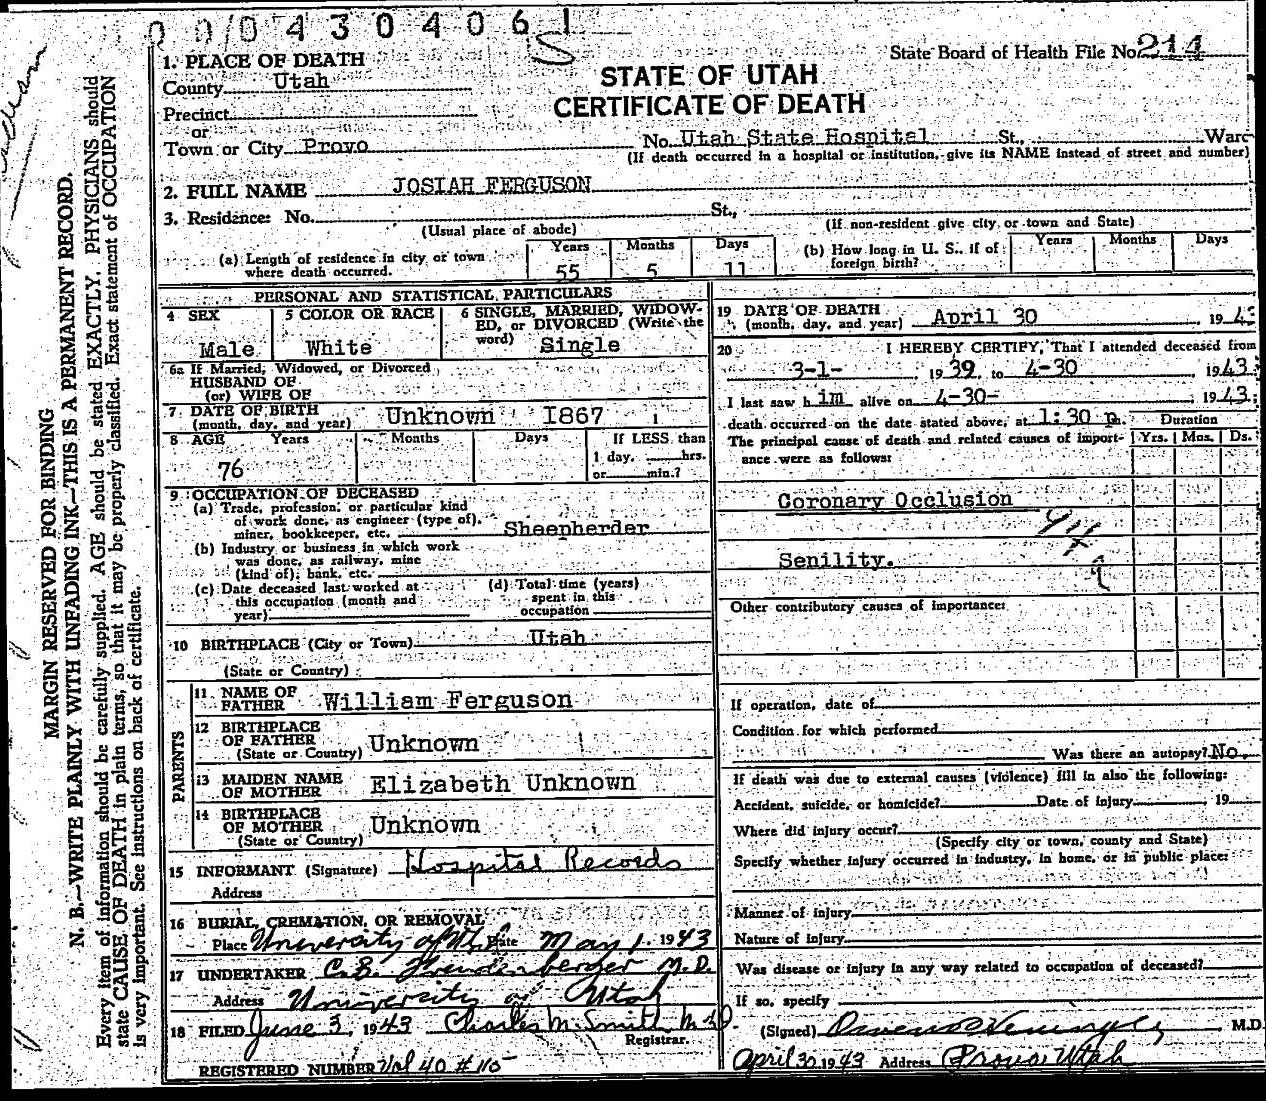 004304061
State Board of Health File No. 214
STATE OF UTAH
CERTIFICATE OF DEATH
1. PLACE OF DEATH
County Utah
Precinct
or
Town or City Provo
No. Utah State Hospital St., Ward
(If death occurred in a hospital or institution, give its NAME instead of street and number)
2. FULL NAME JOSIAH FERGUSON
3. Residence: No. St.,
(Usual place of abode) (If non-resident give city or town and State)
(a) Length of residence in city or town where death occurred. Years 55 Months 5 Days 11
(b) How long in U. S., if of foreign birth? Years Months Days
PERSONAL AND STATISTICAL PARTICULARS
4 SEX Male
5 COLOR OR RACE White
6 SINGLE, MARRIED, WIDOWED, or DIVORCED (Write the word) Single
6a If Married, Widowed, or Divorced
HUSBAND OF
(or) WIFE OF
7 DATE OF BIRTH
(month, day, and year) Unknown 1867
8 AGE Years Months Days If LESS than
76 1 day, hrs.
or min.?
9 OCCUPATION OF DECEASED
(a) Trade, profession, or particular kind
of work done, as engineer (type of),
miner, bookkeeper, etc. Sheepherder
(b) Industry or business in which work
was done, as railway, mine
(kind of), bank, etc.
(c) Date deceased last worked at
this occupation (month and
year)
(d) Total time (years)
spent in this
occupation
10 BIRTHPLACE (City or Town) Utah
(State or Country)
PARENTS
11 NAME OF
FATHER William Ferguson
12 BIRTHPLACE
OF FATHER
(State or Country) Unknown
13 MAIDEN NAME
OF MOTHER Elizabeth Unknown
14 BIRTHPLACE
OF MOTHER
(State or Country) Unknown
15 INFORMANT (Signature) Hospital Records
Address
16 BURIAL, CREMATION, OR REMOVAL
Place University of Utah Date May 1. 1943
17 UNDERTAKER C.B. Freudenberger M.D.
Address University of Utah
18 FILED June 3, 1943 Charles M. Smith, M.D.
Registrar.
REGISTERED NUMBER Vol 40 # 110
19 DATE OF DEATH
(month, day, and year) April 30, 194
20 I HEREBY CERTIFY, That I attended deceased from
3-1- 1939, to 4-30 , 1943.
I last saw him alive on 4-30- , 1943.
death occurred on the date stated above, at 1:30 p. Duration
The principal cause of death and related causes of importance were as follows: Yrs. Mos. Ds.
Coronary Occlusion
94
Senility.
Other contributory causes of importance:
If operation, date of
Condition for which performed
Was there an autopsy? No.
If death was due to external causes (violence) fill in also the following:
Accident, suicide, or homicide? Date of injury 19
Where did injury occur?
(Specify city or town, county and State)
Specify whether injury occurred in industry, in home, or in public place:
Manner of injury
Nature of injury
Was disease or injury in any way related to occupation of deceased?
If so, specify
(Signed) M.D.
April 30 1943 Address Provo Utah
MARGIN RESERVED FOR BINDING
N. B.—WRITE PLAINLY WITH UNFADING INK—THIS IS A PERMANENT RECORD.
Every item of information should be carefully supplied. AGE should be stated EXACTLY. PHYSICIANS should
state CAUSE OF DEATH in plain terms, so that it may be properly classified. Exact statement of OCCUPATION
is very important. See instructions on back of certificate.